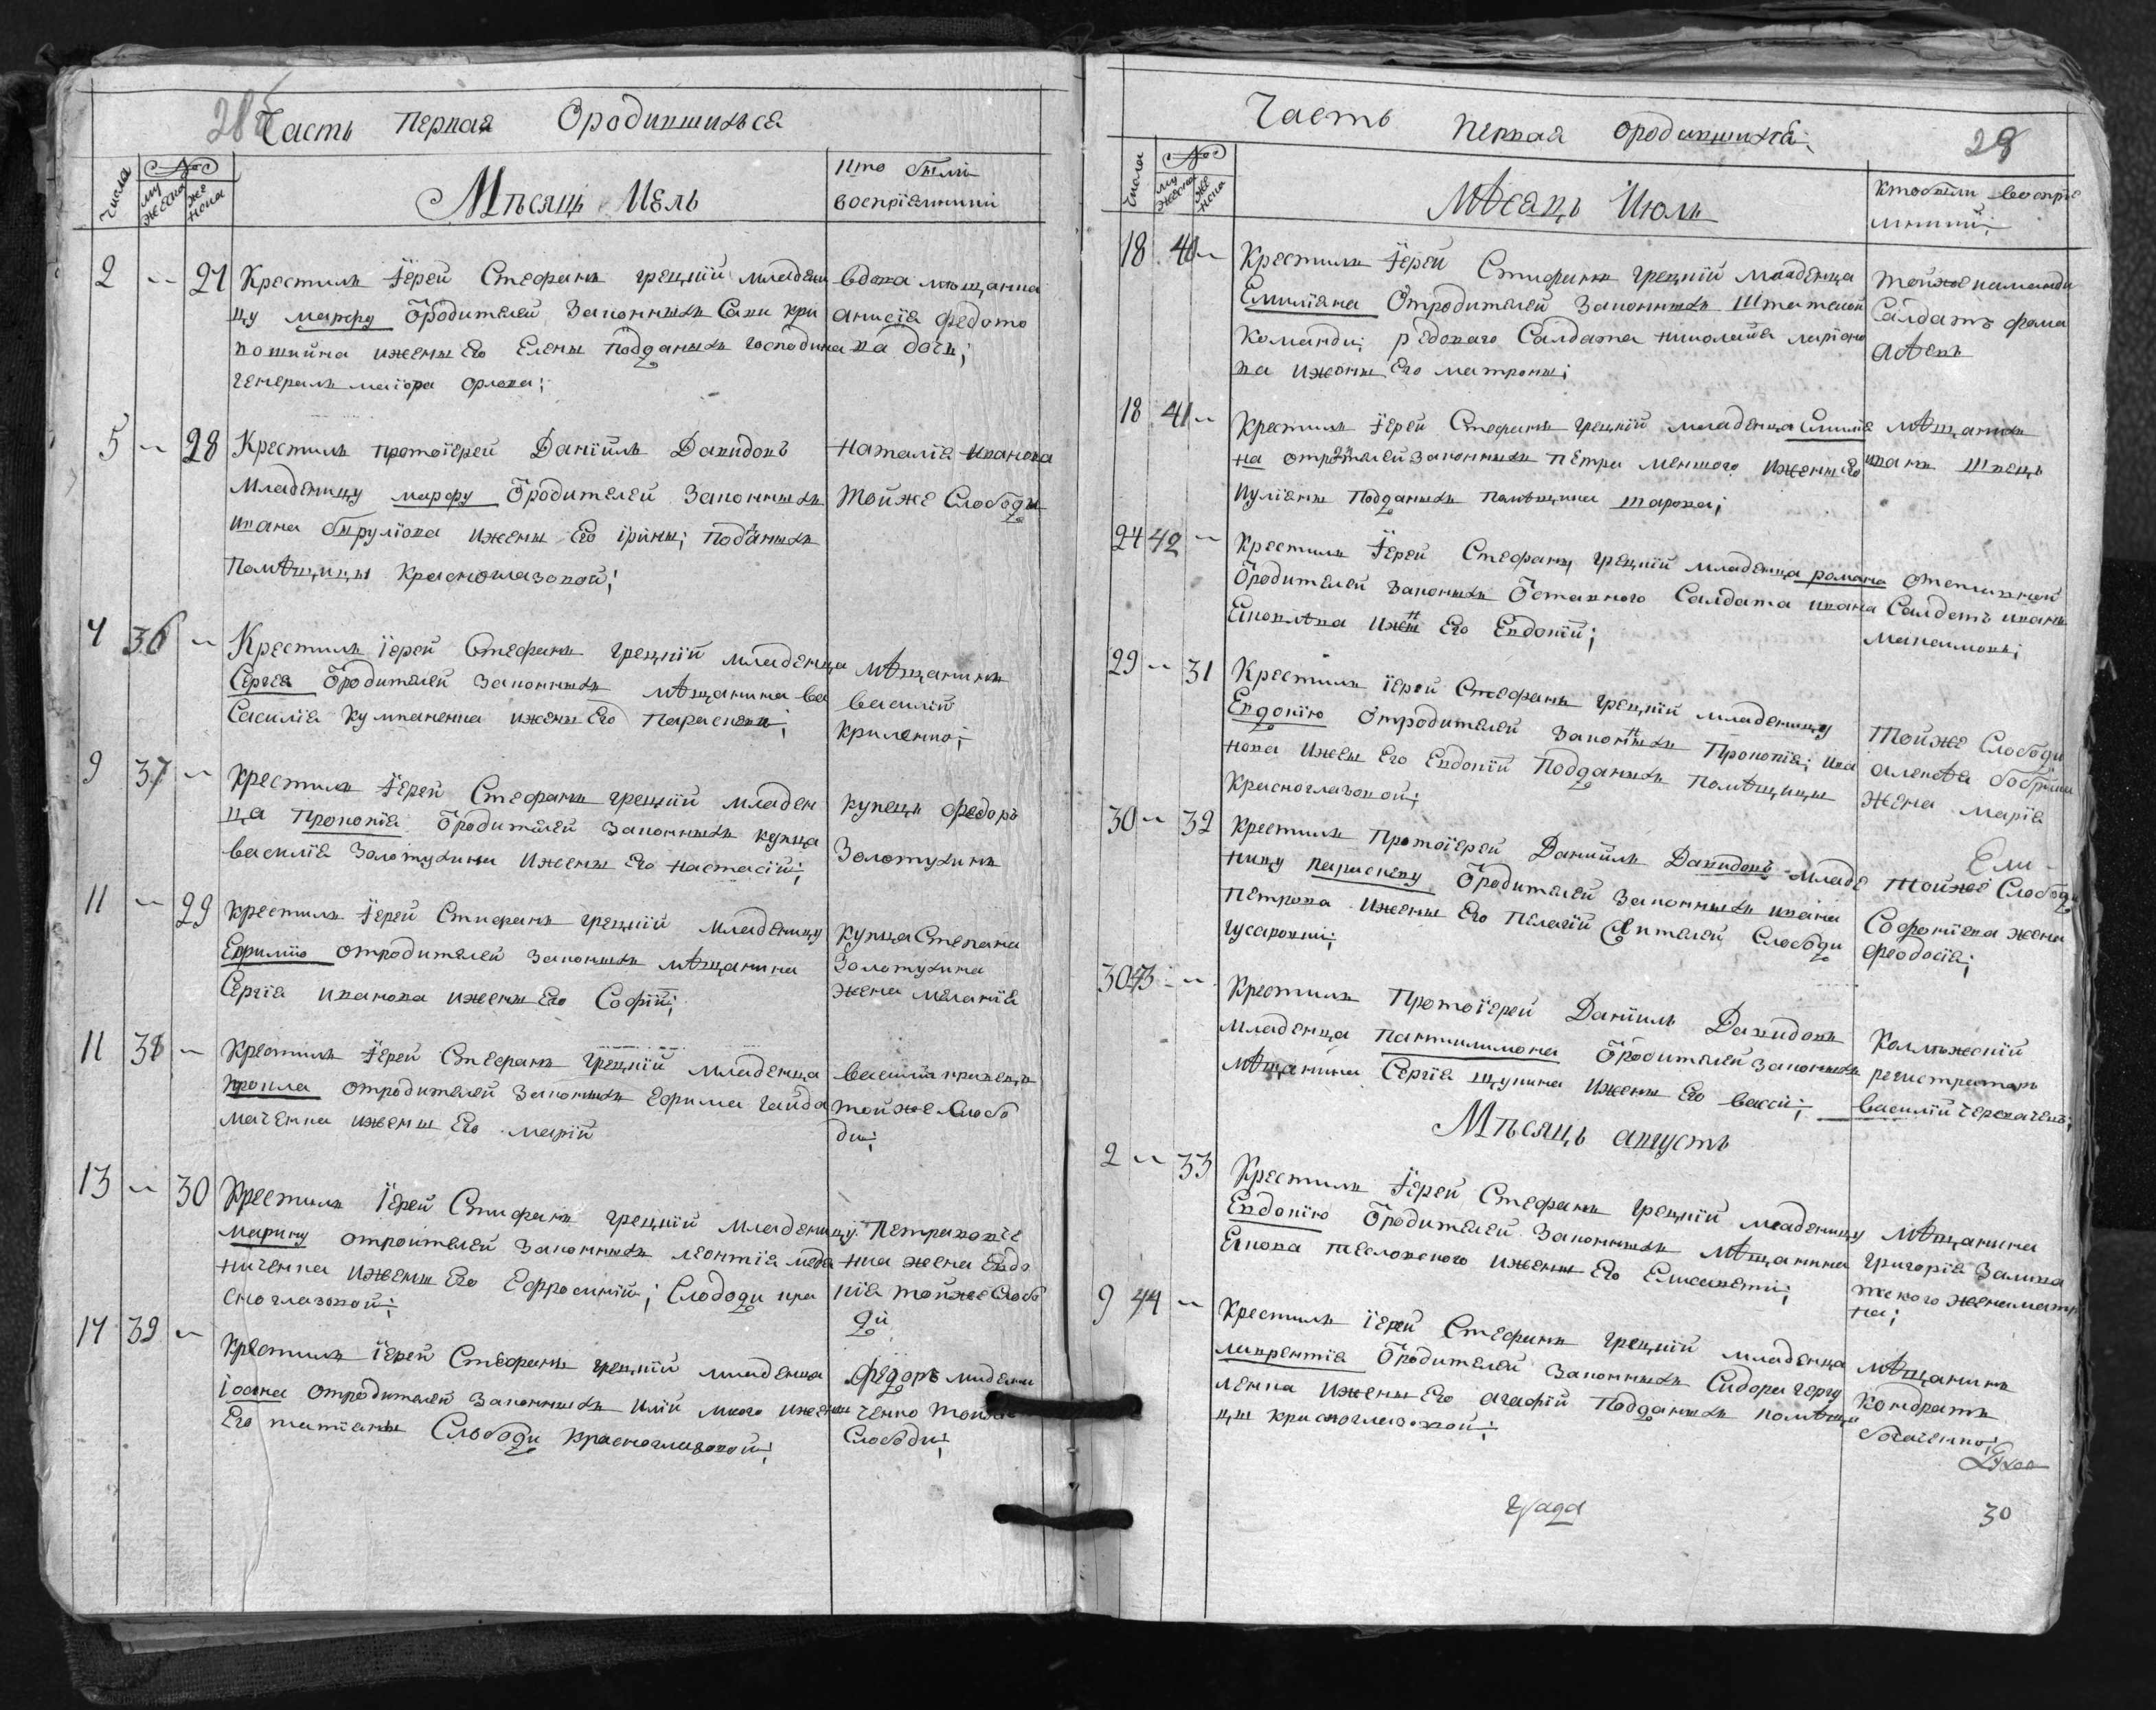 Часть Первая Ородившихся
числа
№
му жеска
же нска
Мѣсяцъ Июль
Кто были
воспріемники
2 27 Крестилъ Іерей Стефанъ Грецкій младени
цу марфу Ӧродителей Законныхъ
жены Его Елены Подданыхъ господина
генералъ маіора Орлова;
вдова мѣщанка
анисія федото
ва дочь;
5 28 Крестилъ протоіерей Даніилъ Давидовъ
младеницу марфу Ӧродителей Законныхъ
ивана ижены Его ірины; Подданыхъ
Помѣщицы Красноглазовой;
наталія иванова
тойже Слободы
4 36 Крестилъ іерей Стефанъ Грецкій младенца
Сергея Ӧродителей Законныхъ мѣщанина ва
Василія ижены Его Параскеви;
мѣщанинъ
василій
криленко;
9 37 Крестилъ Іерей Стефанъ грецкій младен
ца Прокопія Ӧродителей Законныхъ купца
василія Золотухина ижены Его настасіи;
купецъ федоръ
Золотухинъ
11 29 Крестилъ Іерей Стефанъ грецкій младеницу
Ефимію отродителей Законныхъ мѣщанина
Сергія иванова ижены Его Софіи;
купца Степана
Золотухина
жена меланія
11 38 Крестилъ Іерей Стефанъ Грецкій младенца
отродителей Законныхъ Ефима гайда
маченка ижены Его маріи
василій кравецъ
тойже Слобо
ди;
13 30 Крестилъ Іерей Стефанъ грецкій младеницу
марину отроителей Законныхъ леонтія
ниченка ижены Его Ефросиніи; Слободи кра
сноглазовой;
Петра
нка жена Евдо
кія тойже Слобо
ди
17 39 Крестилъ Іерей Стефанъ грецкій младенца
іоана отродителей Законныхъ иліи ижены
Его татіаны Слободи Красноглазовой;
федоръ
ченко тойже
Слободи;
Часть Первая ородившихся
28
числа
№
му жеска
же нска
Мѣсацъ Июль
Кто были воспріе
мники;
18 40 Крестилъ Іерей Стефанъ грецкій младенца
Емиліана Отродителей Законныхъ Штатной
Команди; рѣдоваго Салдата николаія маріоно
ва ижены Его матроны;
тойже команди
Салдатъ фома
18 41 Крестилъ Іерей Стефанъ грецкій младенца Емиліа
на отродителей Законныхъ Петра меншого ижены Его
иуліаны Подданыхъ Помѣщика шарова;
мѣщанинъ
иванъ швецъ
24 42 Крестилъ Іерей Стефанъ грецкій младенца романа
Ӧродителей Законыхъ Ӧставного Салдата ивана
ижены Его Евдокіи;
отставной
Салдатъ иванъ
29 31 Крестилъ іерей Стефанъ грецкій младеницу
Евдокію отродителей Законныхъ Прокопія; ива
нова ижены Его Евдокіи Подданыхъ Помѣщицы
Красноглазовой;
тойже Слободи
алексѣа
жена марія
30 32 Крестилъ Протоіерей Даніилъ Давидовъ младе
ницу параскеву Ӧродителей Законныхъ ивана
Петрова ижены Его Пелагіи жителей Слободи
гусаровки;
тойже Слободи
Софоніева жена
феодосія;
30 43 Крестилъ Протоіерей Даніилъ Давидовъ
младенца Пантилимона Ӧродителей Законныхъ
мѣщанина Сергія щукина ижены Его васси;
Колѣжескій
регистраторъ
василій
Мѣсяцъ августъ
2 33 Крестилъ Іерей Стефанъ грецкій младеницу
Евдокію Ӧродителей Законныхъ мѣщанина
ижены Его Елисавети;
мѣщанина
григорія Залика
тского жена матр
на;
9 44 Крестилъ іерей Стефанъ грецкій младенца
лаврентія Ӧродителей Законныхъ Сидора
ленка ижены Его агафіи Подданыхъ помѣщи
цы красноглазовой;
мѣщанинъ
Кондратъ
богаченко;
града
30